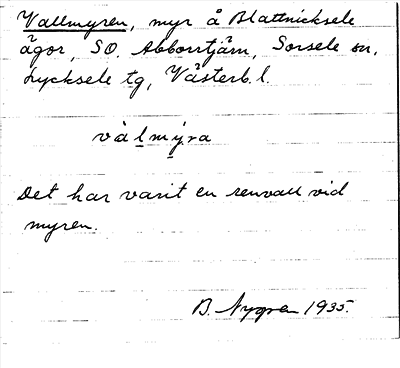 Vallmyren, myr å Blattnicksele
ägor, SO. Abborrtjärn, Sorsele sn,
Lycksele tg, Västerb. l.
vàlmýra
Det har varit en renvall vid
myren.
B. Nygren 1935.